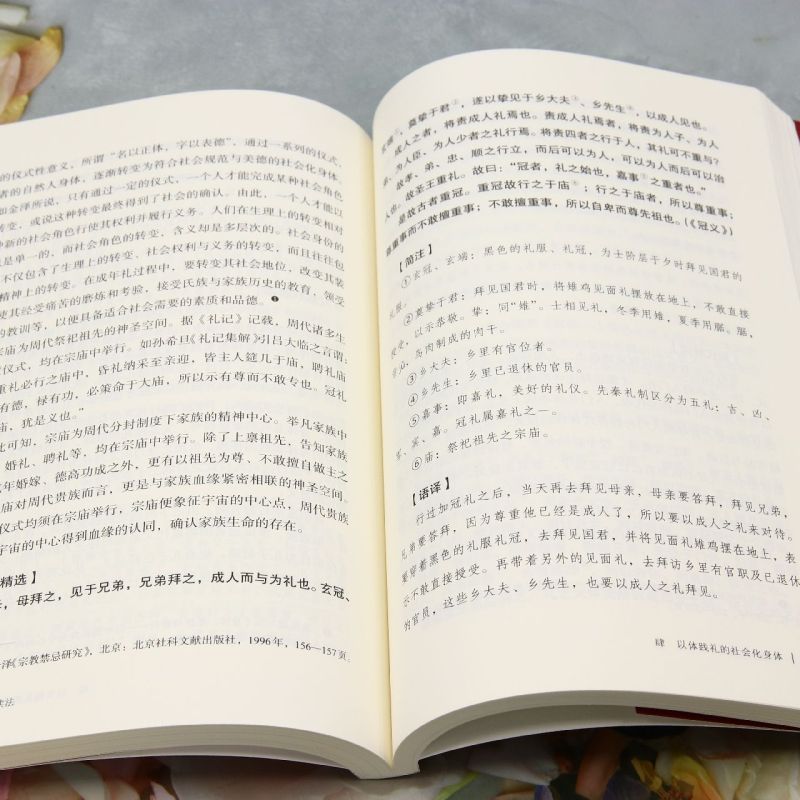 的仪式性意义，所谓“名以正体，字以表德”，通过一系列的仪式，
者的自然人身体，逐渐转变为符合社会规范与美德的社会化身体
如金泽所说，只有通过一定的仪式，一个人才能完成某种社会角色
转变，或说这种转变最终得到了社会的确认。由此，一个人才能以
种新的社会角色行使其权利并履行义务。人们在生理上的转变相对
是单一的，而社会角色的转变，含义却是多层次的。社会身份的
不仅包含了生理上的转变、社会权利与义务的转变，而且往往包
精神上的转变。在成年礼过程中，要转变其社会地位，改变其装
使其经受痛苦的磨炼和考验，接受氏族与家族历史的教育，领受
的教训等，以便具备适合社会需要的素质和品德。❶
宗庙为周代祭祀祖先的神圣空间。据《礼记》记载，周代诸多生
仪式，均在宗庙中举行。如孙希旦《礼记集解》引吕大临之言谓：
重礼必行之庙中，昏礼纳采至亲迎，皆主人筵几于庙，聘礼庙
有德，禄有功，必策命于大庙，所以示有尊而不敢专也。冠礼
庙，犹是义也。”
此可知，宗庙为周代分封制度下家族的精神中心。举凡家族中
、婚礼、聘礼等，均在宗庙中举行。除了上禀祖先，告知家族
成年婚嫁、德高功成之外，更有以祖先为尊、不敢擅自做主之
庙对周代贵族而言，更是与家族血缘紧密相联的神圣空间。
仪式均须在宗庙举行，宗庙便象征宇宙的中心点，周代贵族
宇宙的中心得到血缘的认同，确认家族生命的存在。
精选】
，母拜之，见于兄弟，兄弟拜之，成人而与为礼也。玄冠、
泽《宗教禁忌研究》，北京：北京社科文献出版社，1996年，156—157页。
读法
玄端①，奠挚于君②，遂以挚见于乡大夫③、乡先生④，以成人见也。
成人之者，将责成人礼焉也。责成人礼焉者，将责为人子、为人
弟、为人臣、为人少者之礼行焉。将责四者之行于人，其礼可不重与？
故孝、弟、忠、顺之行立，而后可以为人，可以为人而后可以治
人也。故圣王重礼。故曰：“冠者，礼之始也，嘉事⑤之重者也。”
是故古者重冠。重冠故行之于庙⑥；行之于庙者，所以尊重事；
尊重事而不敢擅重事；不敢擅重事，所以自卑而尊先祖也。（《冠义》）
【简注】
①玄冠、玄端：黑色的礼服、礼冠，为士阶层于夕时拜见国君的
礼服。
②奠挚于君：拜见国君时，将雉鸡见面礼摆放在地上，不敢直接
授受，以示恭敬。挚：同“雉”。士相见礼，冬季用雉，夏季用腒。腒，
鸟肉制成的肉干。
③乡大夫：乡里有官位者。
④乡先生：乡里已退休的官员。
⑤嘉事：即嘉礼，美好的礼仪。先秦礼制区分为五礼：吉、凶、
军、宾、嘉。冠礼属嘉礼之一。
⑥庙：祭祀祖先之宗庙。
【语译】
行过加冠礼之后，当天再去拜见母亲，母亲要答拜，拜见兄弟，
兄弟要答拜，因为尊重他已经是成人了，所以要以成人之礼来对待。
要穿着黑色的礼服礼冠，去拜见国君，并将见面礼雉鸡摆在地上，表
示不敢直接授受。再带着另外的见面礼，去拜访乡里有官职及已退休
的官员，这些乡大夫、乡先生，也要以成人之礼拜见。
肆 以体践礼的社会化身体